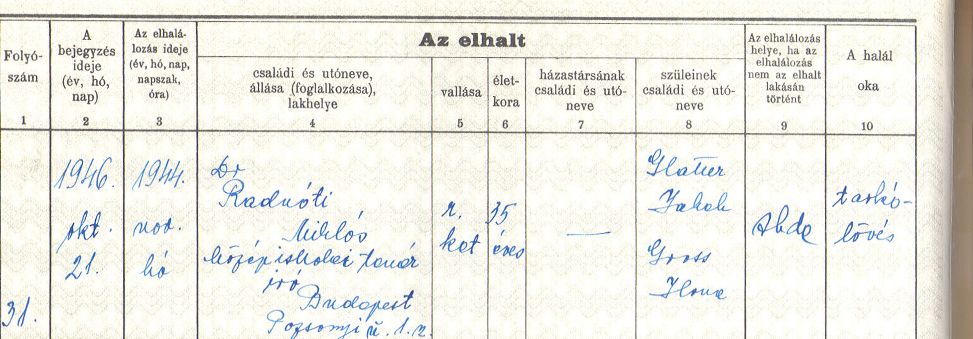 Folyó-
szám
A
bejegyzés
ideje
(év, hó,
nap)
Az elhalá-
lozás ideje
(év, hó, nap,
napszak,
óra)
Az elhalt
családi és utóneve,
állása (foglalkozása),
lakhelye
vallása
élet-
kora
házastársának
családi és utó-
neve
szüleinek
családi és utó-
neve
Az elhalálozás
helye, ha az
elhalálozás
nem az elhalt
lakásán
történt
A halál
oka
1
2
3
4
5
6
7
8
9
10
31.
1946.
okt.
21.
1944.
nov.
hó
Dr
Radnóti
Miklós
középiskolai tanár
író
Budapest
Pozsonyi ú. 1. sz.
r.
kat
35
éves
—
Glatter
Jakab
Gross
Ilona
Abda
tarkó-
lövés